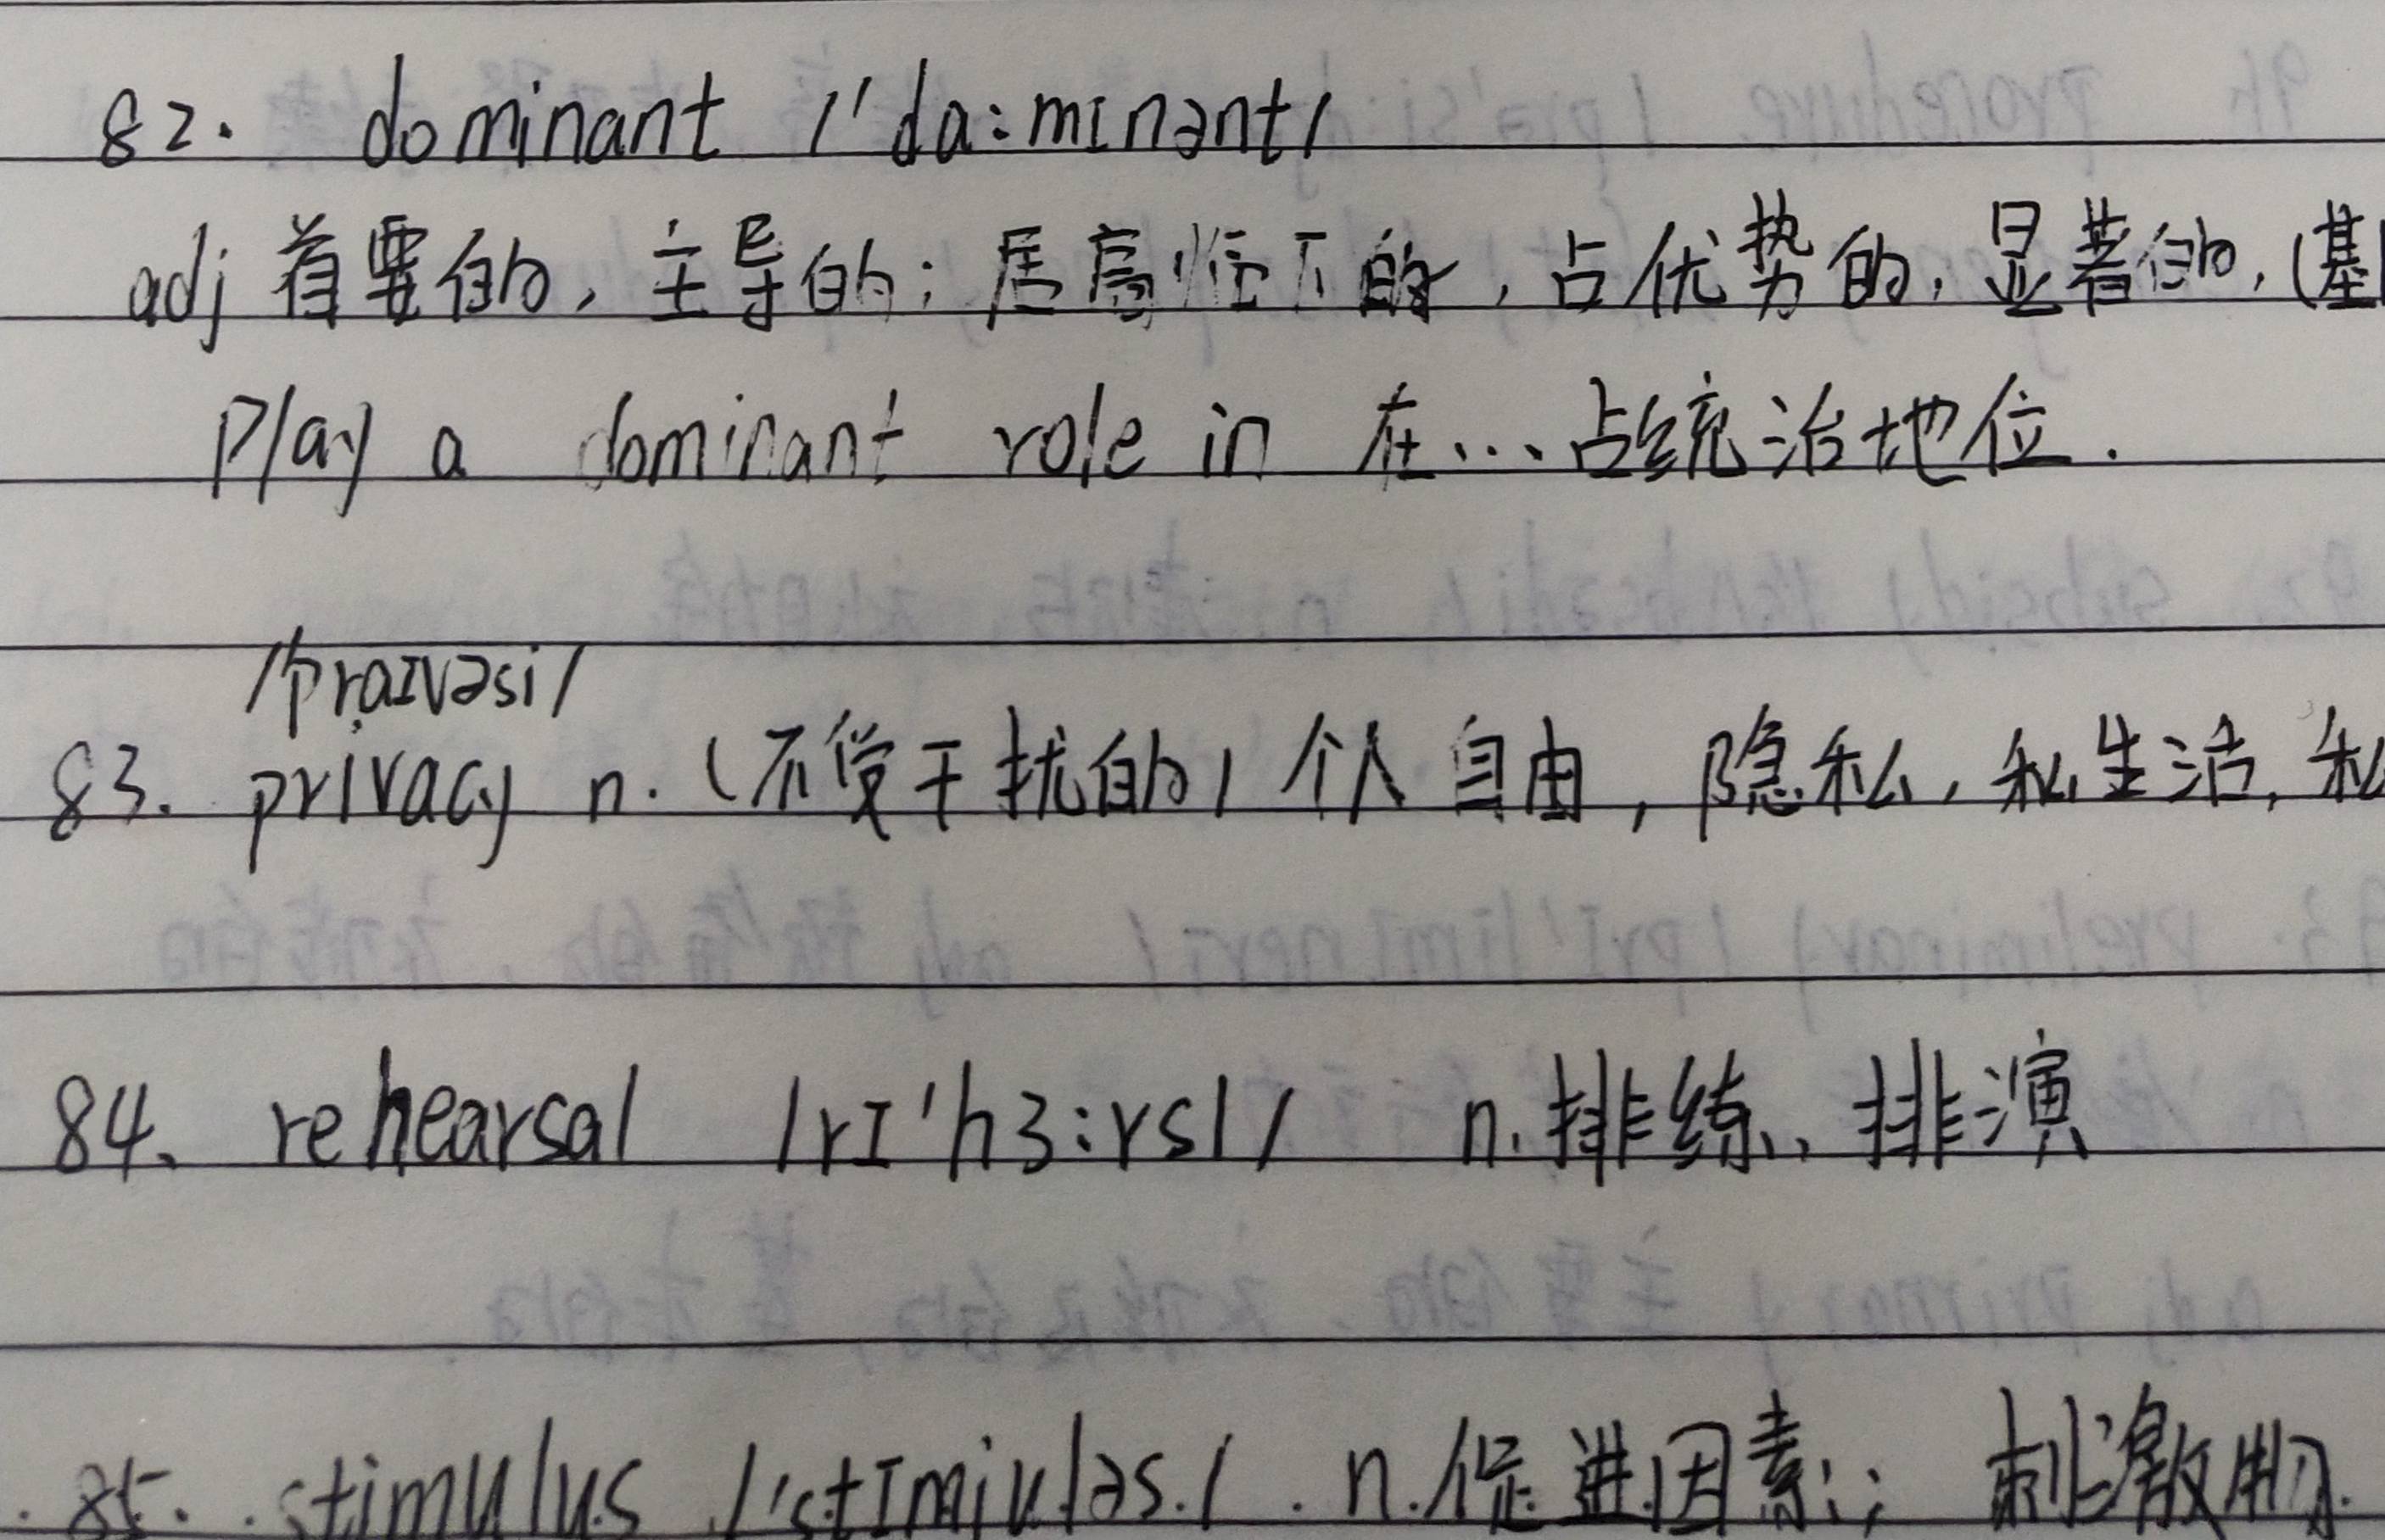 82. dominant /'da:mɪnənt/
adj 首要的, 主导的; 居高临下的, 占优势的, 显著的, (基
Play a dominant role in 在... 占统治地位.
/'praɪvəsi/
83. privacy n. (不受干扰的) 个人自由, 隐私, 私生活, 私
84、 rehearsal /rɪ'hɜ:rsl/ n. 排练, 排演
85. stimulus /'stɪmjuləs/ n. 促进因素; 刺激物.